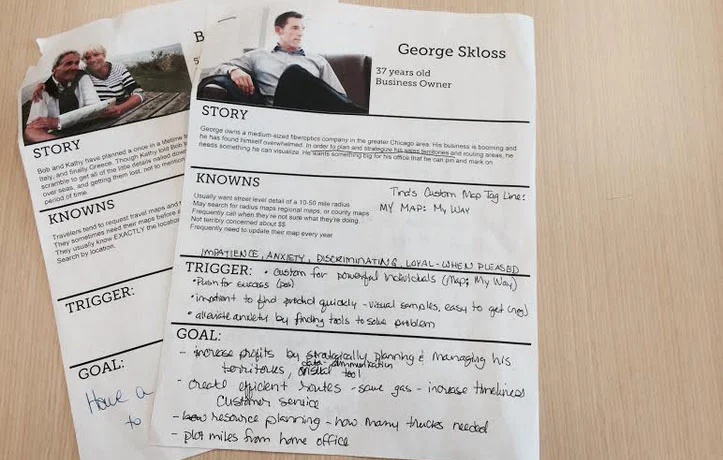 B
5
STORY
Bob and Kathy have planned a once in a lifetime t
Italy, and finally Greece. Though Kathy told Bob
scramble to get all of the little details nailed down
over seas, and getting them lost, not to mention
period of time.
KNOWNS
Travelers tend to request travel maps and
They sometimes need their maps before
They usually know EXACTLY the location
Search by location.
TRIGGER:
GOAL:
Have a
to
George Skloss
37 years old
Business Owner
STORY
George owns a medium-sized fiberoptics company in the greater Chicago area. His business is booming and
he has found himself overwhelmed. In order to plan and strategize his sales territories and routing areas, he
needs something he can visualize. He wants something big for his office that he can pin and mark on.
KNOWNS
Usually want street level detail of a 10-50 mile radius
May search for radius maps regional maps, or county maps
Frequently call when they're not sure what they're doing.
Not terribly concerned about $$
Frequently need to update their map every year
Tina's Custom Map Tag Line:
MY MAP: My WAY
IMPATIENCE, ANXIETY, DISCRIMINATING, LOYAL-WHEN PLEASED
TRIGGER: • Custom for powerful individuals (Map; My Way)
• Push for success (pos)
• impatient to find product quickly - visual samples, easy to get (neg)
• alleviate anxiety by finding tools to solve problem
GOAL:
- increase profits by strategically planning & managing his
territories, data-communication
tool
- create efficient routes - save gas - increase timeliness
customer service
- resource planning - how many trucks needed
- plot miles from home office